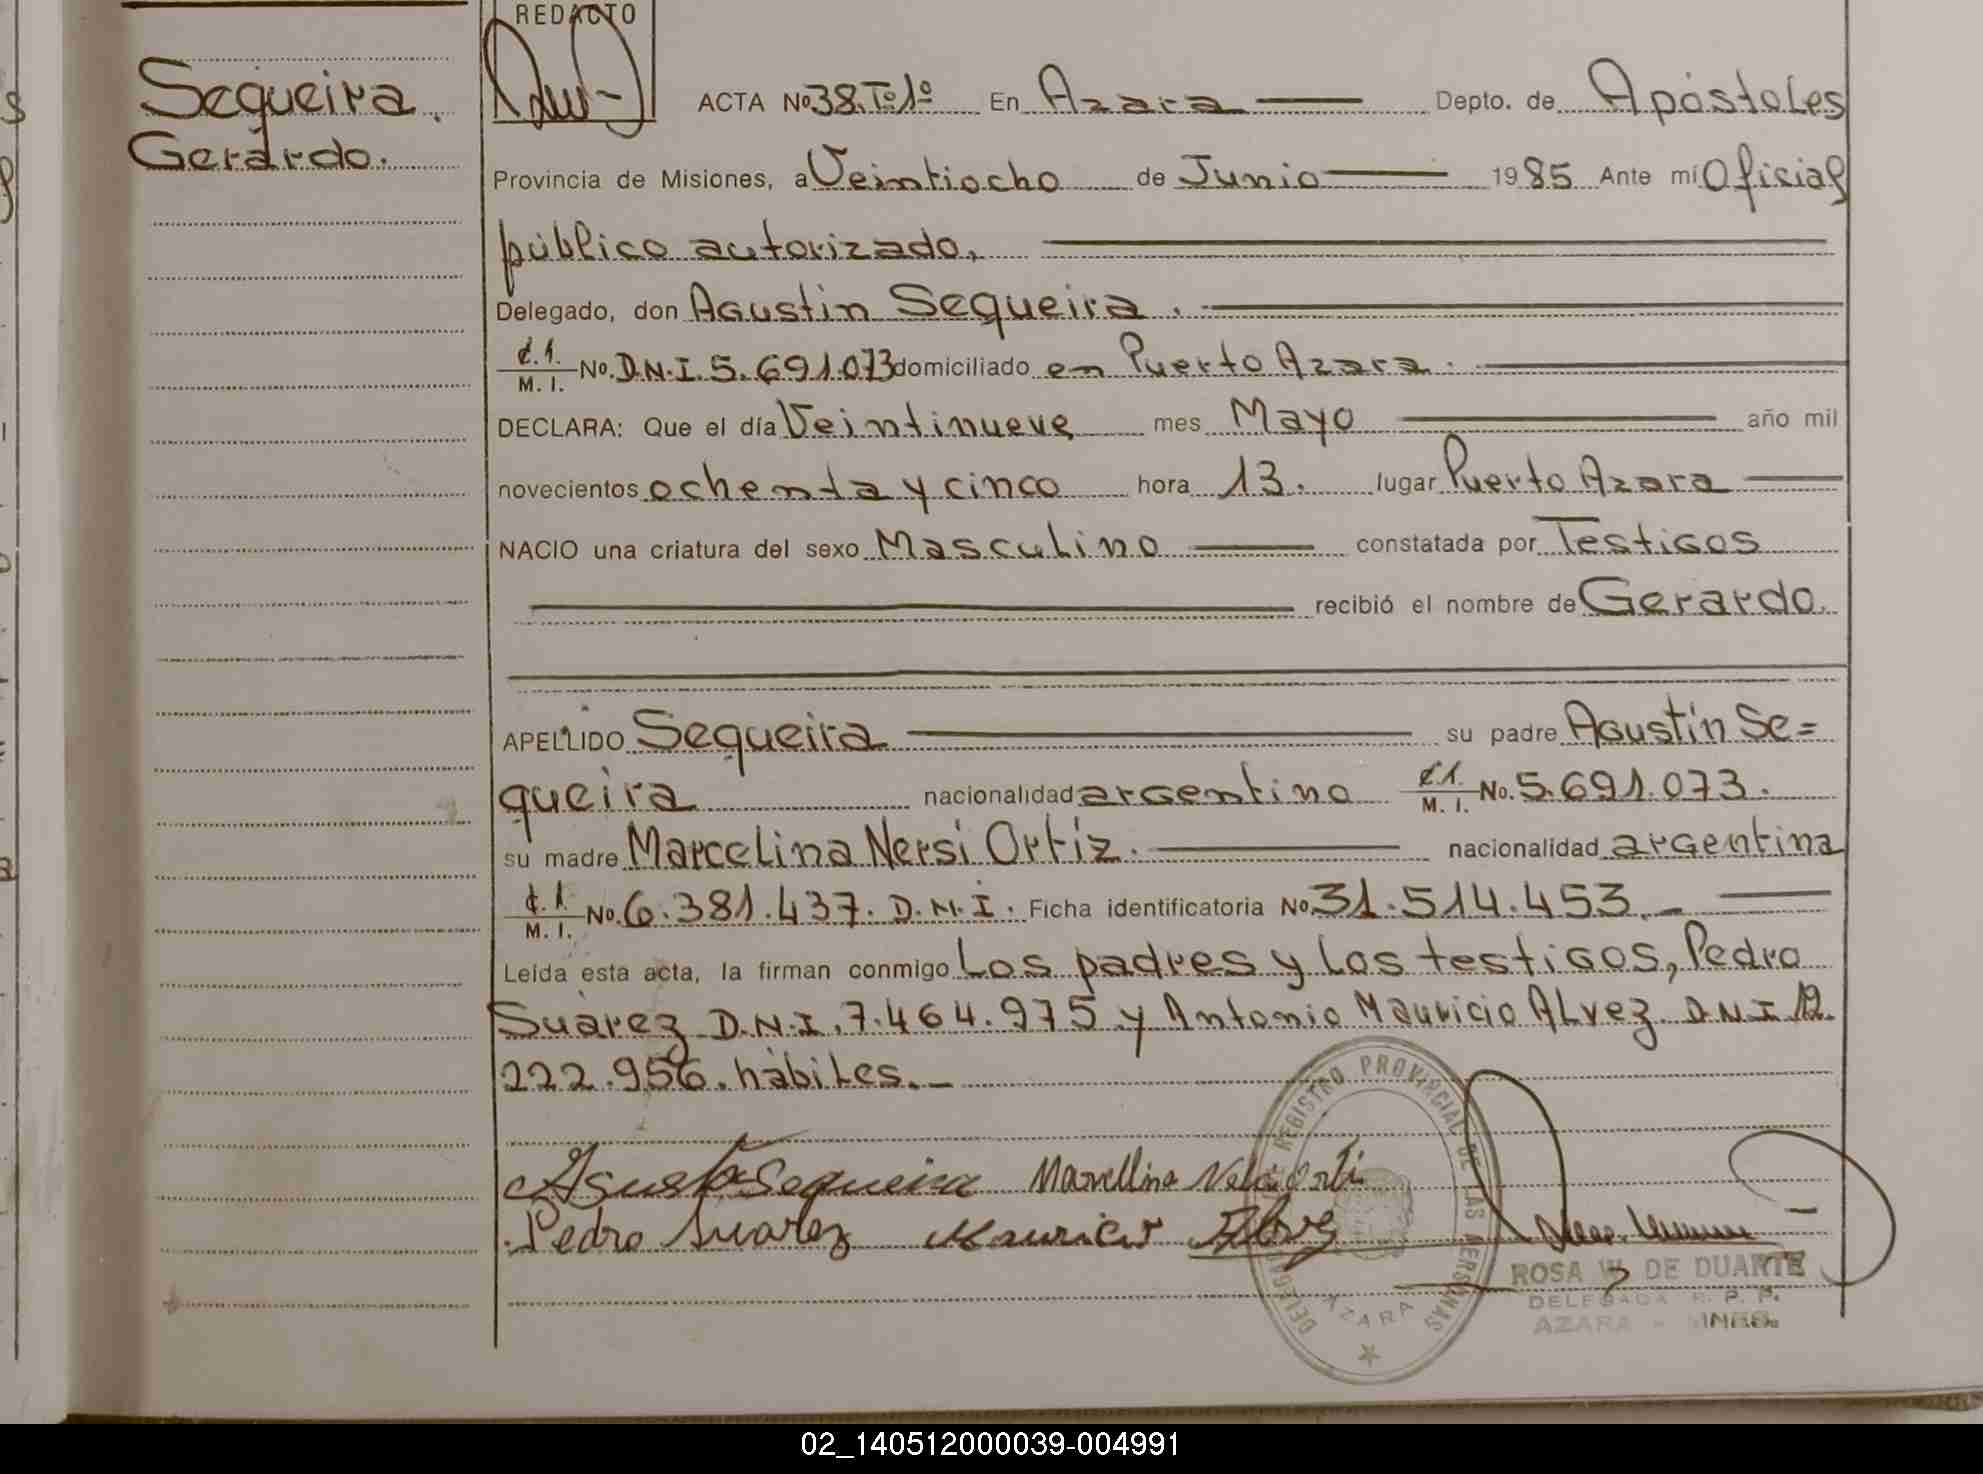 Sequeira.
Gerardo.
REDACTO
ACTA No 38. Tº 1º En Azara Depto. de Apóstoles
Provincia de Misiones, a Veintiocho de Junio 1985 Ante mí Oficial
público autorizado,
Delegado, don Agustin Sequeira.
C.I. / M. I. No. D.N.I. 5.691.073 domiciliado en Puerto Azara.
DECLARA: Que el día Veintinueve mes Mayo año mil
novecientos ochenta y cinco hora 13. lugar Puerto Azara
NACIO una criatura del sexo Masculino constatada por Testigos
recibió el nombre de Gerardo.
APELLIDO Sequeira su padre Agustín Se=
queira nacionalidad argentina C.I. / M. I. No. 5.691.073.
su madre Marcelina Nersi Ortiz. nacionalidad argentina
C.I. / M. I. No. 6.381.437. D.N.I. Ficha identificatoria No 31.514.453.
Leída esta acta, la firman conmigo Los padres y los testigos, Pedro
Suàrez D.N.I. 7.464.975 y Antonio Mauricio Alvez D.N.I
222.956. hàbiles.
Agustin Sequeira
Pedro Suarez Mauricio Alvez
REGISTRO PROVINCIAL DE LAS PERSONAS
AZARA
ROSA W. DE DUARTE
DELEGADA R. P. P.
AZARA
02_140512000039-004991